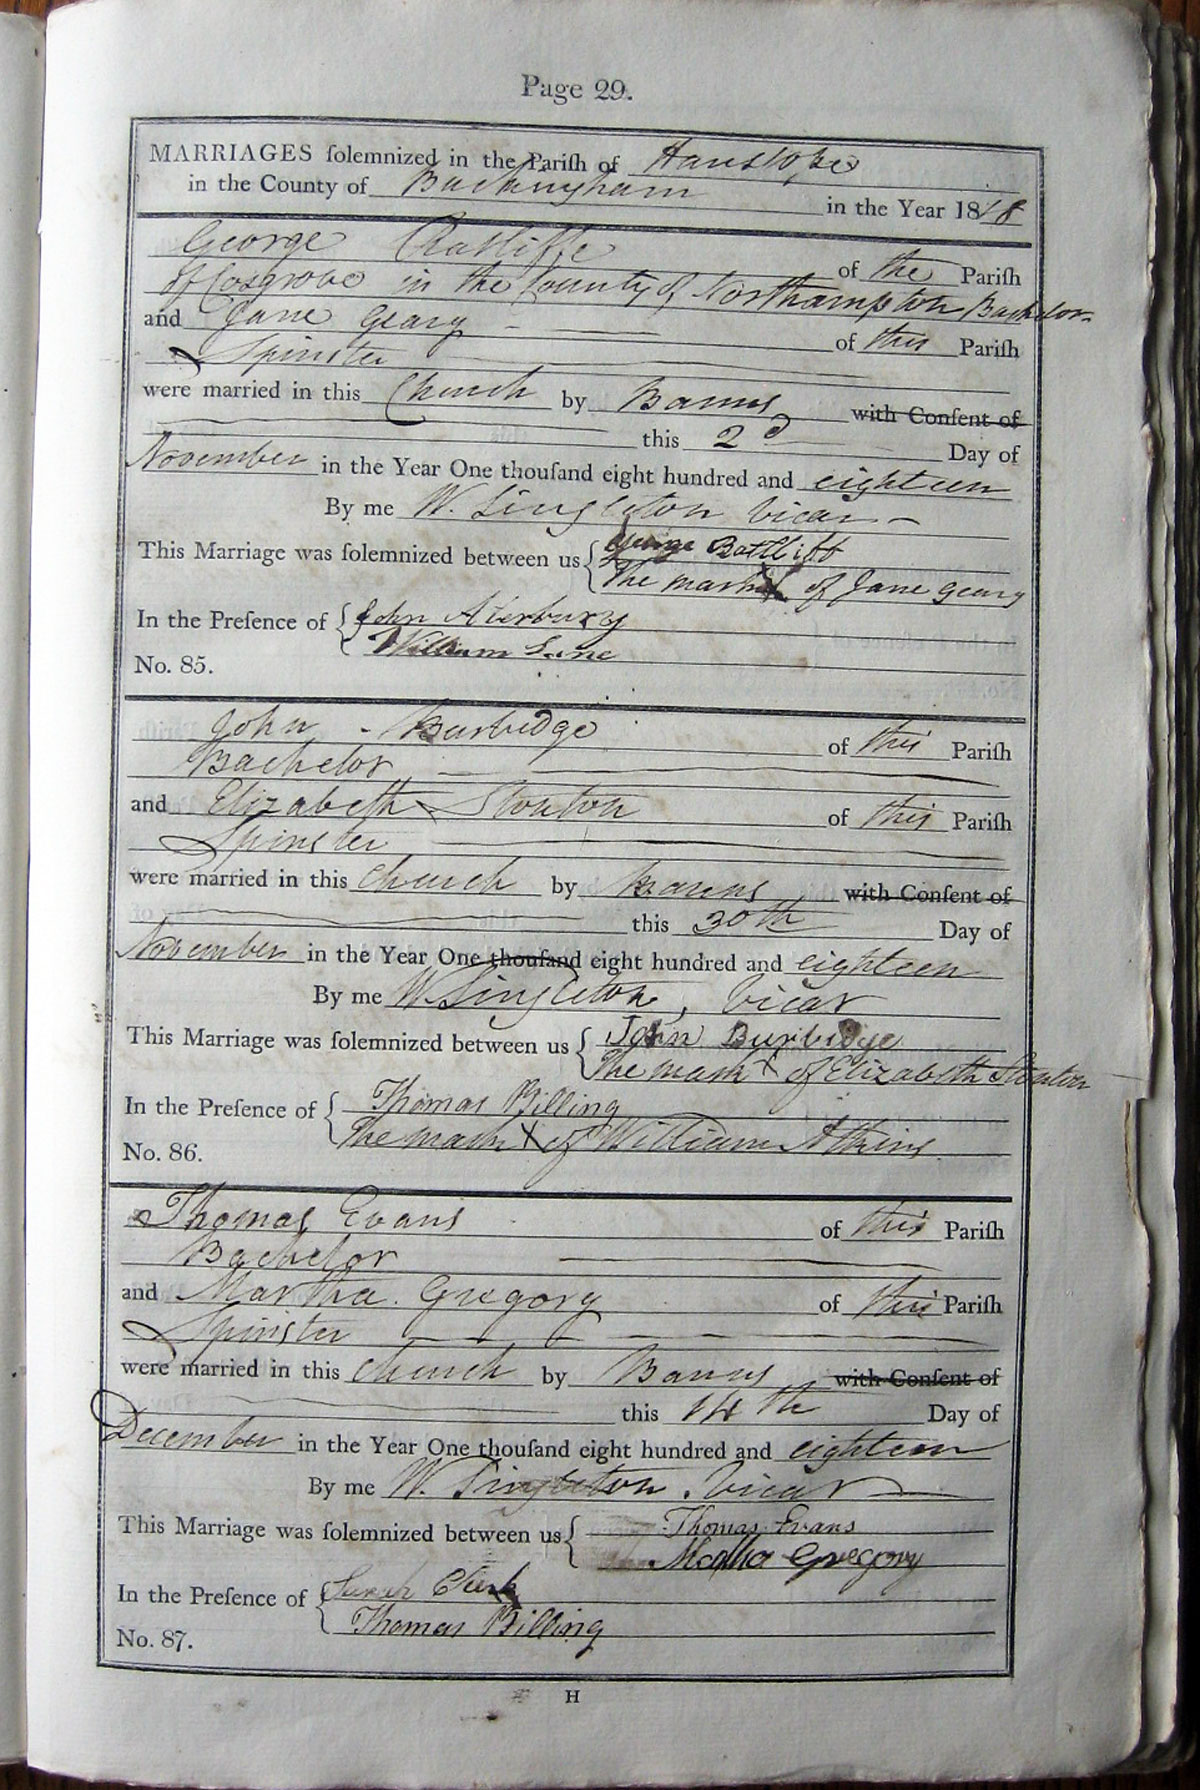 Page 29.
MARRIAGES ſolemnized in the Pariſh of Hanslope
in the County of Buckingham
in the Year 1818
George Ratliffe of the Pariſh
of Cosgrove in the County of Northampton Bachelor
and Jane Geary of this Pariſh
Spinster
were married in this Church by Banns with Conſent of
this 2d Day of
November in the Year One thouſand eight hundred and eighteen
By me W. Singleton Vicar
This Marriage was ſolemnized between us { George Ratliff
The mark X of Jane Geary
In the Preſence of { John Aterbury
William Lane
No. 85.
John Burbidge of this Pariſh
Bachelor
and Elizabeth Stonton of this Pariſh
Spinster
were married in this Church by Banns with Conſent of
this 30th Day of
November in the Year One thouſand eight hundred and eighteen
By me W. Singleton, Vicar
This Marriage was ſolemnized between us { John Burbidge
The mark X of Elizabeth Stonton
In the Preſence of { Thomas Billing
The mark X of William Atkins
No. 86.
Thomas Evans of this Pariſh
Bachelor
and Martha Gregory of this Pariſh
Spinster
were married in this Church by Banns with Conſent of
this 14th Day of
December in the Year One thouſand eight hundred and eighteen
By me W. Singleton, Vicar
This Marriage was ſolemnized between us { Thomas Evans
Martha Gregory
In the Preſence of { Sarah
Thomas Billing
No. 87.
H